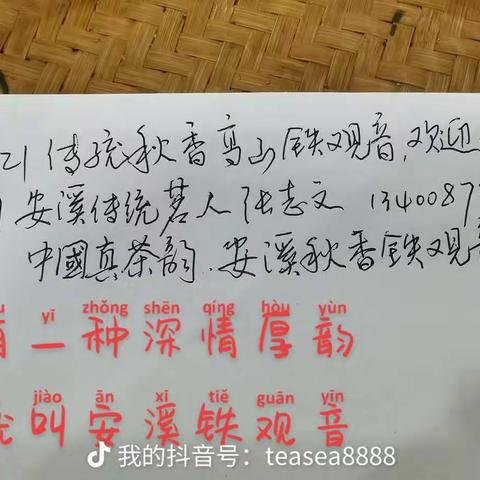 21传统秋香高山铁观音,欢迎
安溪传统茗人张志文 1340087
中國真茶韵.安溪秋香铁观音
yī zhǒng shēn qíng hòu yùn
有一种深情厚韵
jiào ān xī tiě guān yīn
叫安溪铁观音
我的抖音号：teasea8888